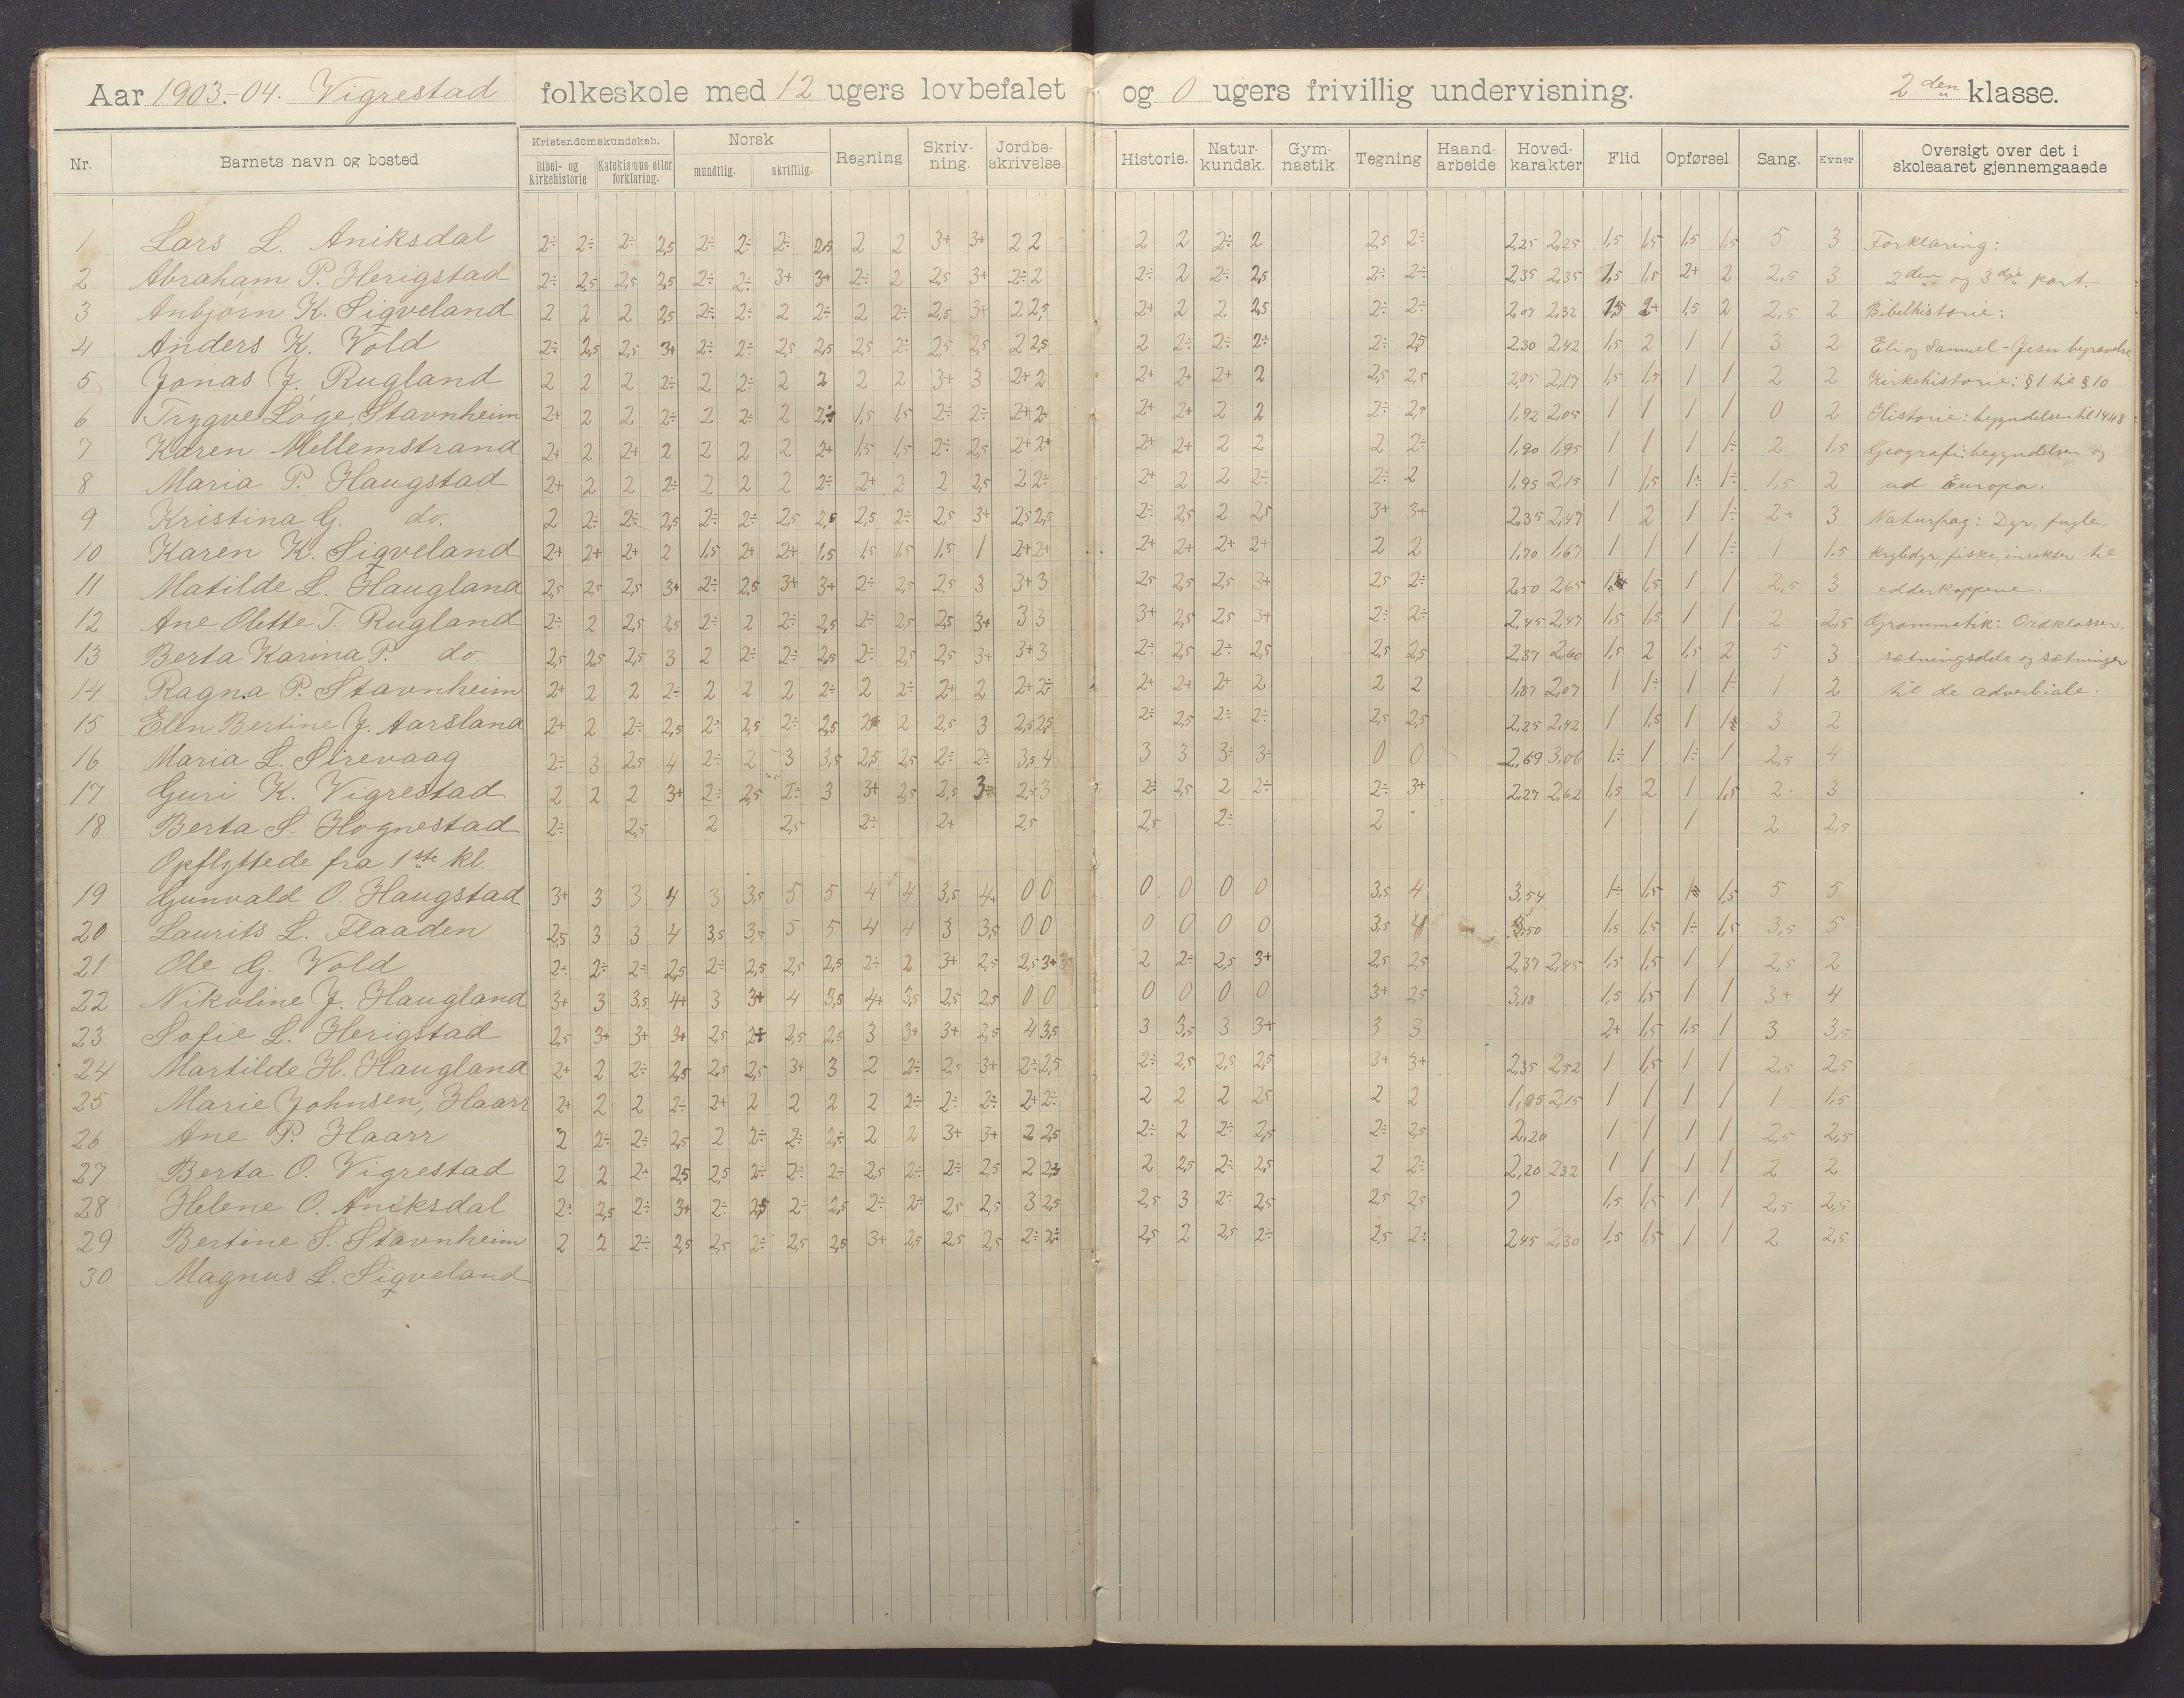 Aar 1903.-04. Vigrestad folkeskole med 12 ugers lovbefalet og 0 ugers frivillig undervisning. 2den klasse.
Nr. Barnets navn og bosted Kristendomskundskab. Bibel- og kirkehistorie Katekismus eller forklaring. Norsk mundtlig. skriftlig. Regning Skriv-ning. Jordbe-skrivelse. Historie. Natur-kundsk. Gym-nastik. Tegning Haand-arbeide Hoved-karakter Flid Opførsel. Sang. Evner Oversigt over det i skoleaaret gjennemgaaede
1 Lars L. Aniksdal 2÷ 2÷ 2÷ 2,5 2÷ 2÷ 2÷ 2,5 2 2 3+ 3+ 2 2 2 2 2÷ 2 2,5 2÷ 2,25 2,25 1,5 1,5 1,5 1,5 5 3 Forklaring:
2 Abraham P. Herigstad 2÷ 2,5 2,5 2,5 2÷ 2÷ 3+ 3+ 2÷ 2 2,5 3+ 2÷ 2 2÷ 2 2÷ 2,5 2÷ 2÷ 2,35 2,35 1,5 1,5 2+ 2 2,5 3 2den og 3dje part.
3 Anbjørn K. Sigveland 2 2 2 2,5 2÷ 2÷ 2 2÷ 2 2÷ 2,5 3+ 2 2,5 2+ 2 2 2,5 2÷ 2÷ 2,07 2,32 1,5 2+ 1,5 2 2,5 2 Bibelhistorie:
4 Anders K. Vold 2÷ 2,5 2,5 3+ 2÷ 2÷ 2,5 2,5 2,5 2÷ 2,5 2,5 2 2,5 2 2÷ 2÷ 2÷ 2÷ 2,5 2,30 2,42 1,5 2 1 1 3 2 Eli og Samuel - Jesu begravelse
5 Jonas J. Rugland 2 2 2 2÷ 2 2÷ 2 2 2 2 3+ 3 2+ 2 2+ 2+ 2+ 2 2,5 2,5 2,05 2,17 1,5 1,5 1 1 2 2 Kirkehistorie: § 1 til § 10
6 Trygve Løge, Stavnheim 2+ 2 2 2÷ 2 2÷ 2 2÷ 1,5 1,5 2÷ 2÷ 2+ 2+ 2+ 2+ 2 2 2÷ 2,5 1,92 2,05 1 1 1 1 0 2 Historie: begyndelsen til 1448
7 Karen Mellemstrand 2+ 2 2+ 2 2 2 2 2+ 1,5 1,5 2÷ 2,5 2+ 2+ 2+ 2+ 2 2 2 2÷ 1,90 1,95 1 1 1 1÷ 2 1,5 Geografi: begyndelsen og
8 Maria P. Haugstad 2+ 2 2 2÷ 2 2 2 2÷ 2+ 2 2 2,5 2 2÷ 2+ 2 2 2÷ 2÷ 2 1,95 2,15 1 1,5 1÷ 1÷ 1,5 2 ud Europa.
9 Kristina G. do. 2 2÷ 2÷ 2,5 2÷ 2÷ 2,5 2,5 2,5 2÷ 2,5 3+ 2,5 2,5 2÷ 2,5 2 2,5 3+ 3+ 2,35 2,47 1 2 1 1÷ 2+ 3 Naturfag: Dyr, fugle,
10 Karen K. Sigveland 2+ 2+ 2+ 2 1,5 2+ 2+ 1,5 1,5 1,5 1,5 1 2+ 2+ 2+ 2+ 2+ 2+ 2 2 1,70 1,67 1 1 1 1÷ 1 1,5 krybdyr, fiske, insekter til
11 Matilde L. Haugland 2,5 2,5 2,5 3+ 2÷ 2,5 3+ 3+ 2÷ 2,5 2,5 3 3+ 3 2,5 2,5 2,5 3+ 2,5 2÷ 2,50 2,65 1,5 1 1 2,5 3 edderkoppene.
12 Ane Olette T. Rugland 2÷ 2 2,5 2,5 2÷ 2 2÷ 2,5 2÷ 2,5 2,5 3+ 3 3 3+ 2,5 2,5 3+ 2÷ 2÷ 2,45 2,47 1,5 1,5 1 1 2 2,5 Grammatik: Ordklasser,
13 Berta Karina P. do. 2,5 2,5 2,5 3 2 2÷ 2÷ 2,5 2÷ 2,5 2,5 3+ 3+ 3 2÷ 2,5 2÷ 2,5 2,5 2,5 2,37 2,60 1,5 2 1,5 2 5 3 sætningsdele og sætninger
14 Ragna P. Stavnheim 2+ 2 2 2÷ 2 2 2 2÷ 2 2÷ 2+ 2 2+ 2÷ 2+ 2+ 2+ 2 2 2 1,87 2,07 1 1÷ 1 1÷ 1 2 til de adverbiale.
15 Elen Bertine J. Aarsland 2+ 2 2÷ 2,5 2÷ 2,5 2÷ 2,5 2 2 2,5 3 2,5 2,5 2÷ 2,5 2÷ 2÷ 2,5 2,5 2,25 2,42 1 1,5 1 1 3 2
16 Maria L. Sirevaag 2÷ 3 2,5 4 2÷ 2 3 3,5 2,5 2,5 2÷ 2÷ 3,5 4 3 3 3÷ 3÷ 0 0 2,69 3,06 1÷ 1 1÷ 1 2,5 4
17 Guri K. Vigrestad 2 2 2 3+ 2÷ 2,5 2÷ 3 3+ 2,5 2,5 3+ 2,5 3 2÷ 2,5 2 2÷ 2÷ 3+ 2,27 2,62 1,5 2 1 1,5 2 3
18 Berta S. Hognestad 2÷ 2,5 2 2,5 2÷ 2+ 2,5 2,5 2÷ 2 1 1 2 2,5
Opflyttede fra 1ste kl.
19 Gunvald O. Haugstad 3+ 3 3 4 3 3,5 5 5 4 4 3,5 4+ 0 0 0 0 0 0 3,5 4 3,54 1÷ 1,5 1÷ 1,5 5 5
20 Laurits L. Flaaden 2,5 3 3 4 3,5 3,5 5 5 4 4 3 3,5 0 0 0 0 0 0 3,5 4 3,50 1,5 1,5 1÷ 1,5 3,5 5
21 Ole G. Vold 2÷ 2÷ 2÷ 2,5 2÷ 2,5 2,5 2,5 2÷ 2 3+ 2,5 2,5 3+ 2 2÷ 2,5 3+ 2,5 2,5 2,37 2,45 1,5 1,5 1 1 2,5 2
22 Nikoline J. Haugland 3+ 3 3,5 4+ 3 3+ 4 3,5 4+ 3,5 2,5 2,5 0 0 0 0 0 0 3+ 2,5 3,18 1,5 1,5 1 1 3+ 4
23 Sofie L. Herigstad 2,5 3+ 3+ 3+ 2,5 2+ 2,5 2,5 3 3+ 3+ 2,5 4 3,5 3 3,5 3 3+ 3 3 2+ 1,5 1,5 1 3 3,5
24 Martilde H. Haugland 2+ 2 2÷ 2,5 2,5 2,5 3+ 3 2 2÷ 2,5 3+ 2÷ 2,5 2÷ 2,5 2,5 2,5 3+ 3+ 2,35 2,52 1 1,5 1 1 2,5 2,5
25 Marie Johnsen, Haarr 2+ 2 2 2÷ 2+ 2 2 2 2 2÷ 2÷ 2÷ 2+ 2÷ 2 2 2 2,5 2 2 1,95 2,15 1 1 1 1 1 1,5
26 Ane P. Haarr 2 2÷ 2÷ 2,5 2 2÷ 2÷ 2÷ 2 2 3+ 3+ 2 2,5 2÷ 2 2÷ 2,5 2÷ 2,5 2,20 1 1 1 1 2,5 2,5
27 Berta O. Vigrestad 2 2 2÷ 2,5 2,5 2÷ 2÷ 2÷ 2,5 2÷ 2÷ 2,5 2 2,5 2 2,5 2÷ 2,5 2 2÷ 2,20 2,32 1 1 1 1 2 2
28 Helene O. Aniksdal 2÷ 2,5 2÷ 3+ 2÷ 2,5 2÷ 2,5 2÷ 2÷ 2,5 2,5 3 2,5 2,5 3 2÷ 2,5 2,5 2,5 1,5 1,5 1 1 2,5 2,5
29 Bertine S. Stavnheim 2 2 2÷ 2,5 2,5 2÷ 2,5 2,5 3+ 2,5 2,5 2,5 2÷ 2÷ 2,5 2 2,5 2÷ 2,5 2÷ 2,45 2,30 1,5 1,5 1 1 2 2,5
30 Magnus L. Sigveland